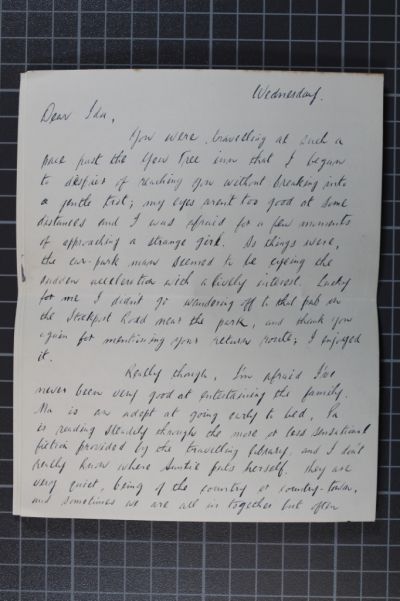 Wednesday.
Dear Ida,
You were travelling at such a
pace past the Yew Tree inn that I began
to despair of reaching you without breaking into
a gentle trot; my eyes arent too good at some
distances and I was afraid for a few moments
of approaching a strange girl. As things were,
the car-park man seemed to be eyeing the
sudden acceleration with a lively interest. Lucky
for me I didnt go wandering off to that pub on
the Stockport Road near the park, and thank you
again for mentioning your return route; I enjoyed
it.
Really though, I'm afraid I've
never been very good at entertaining the family.
Ma is an adept at going early to bed, Pa
is reading steadily through the more or less sensational
fiction provided by the travelling library, and I don't
really know where Auntie puts herself. They are
very quiet, being of the country or country-town,
and sometimes we are all in together but often